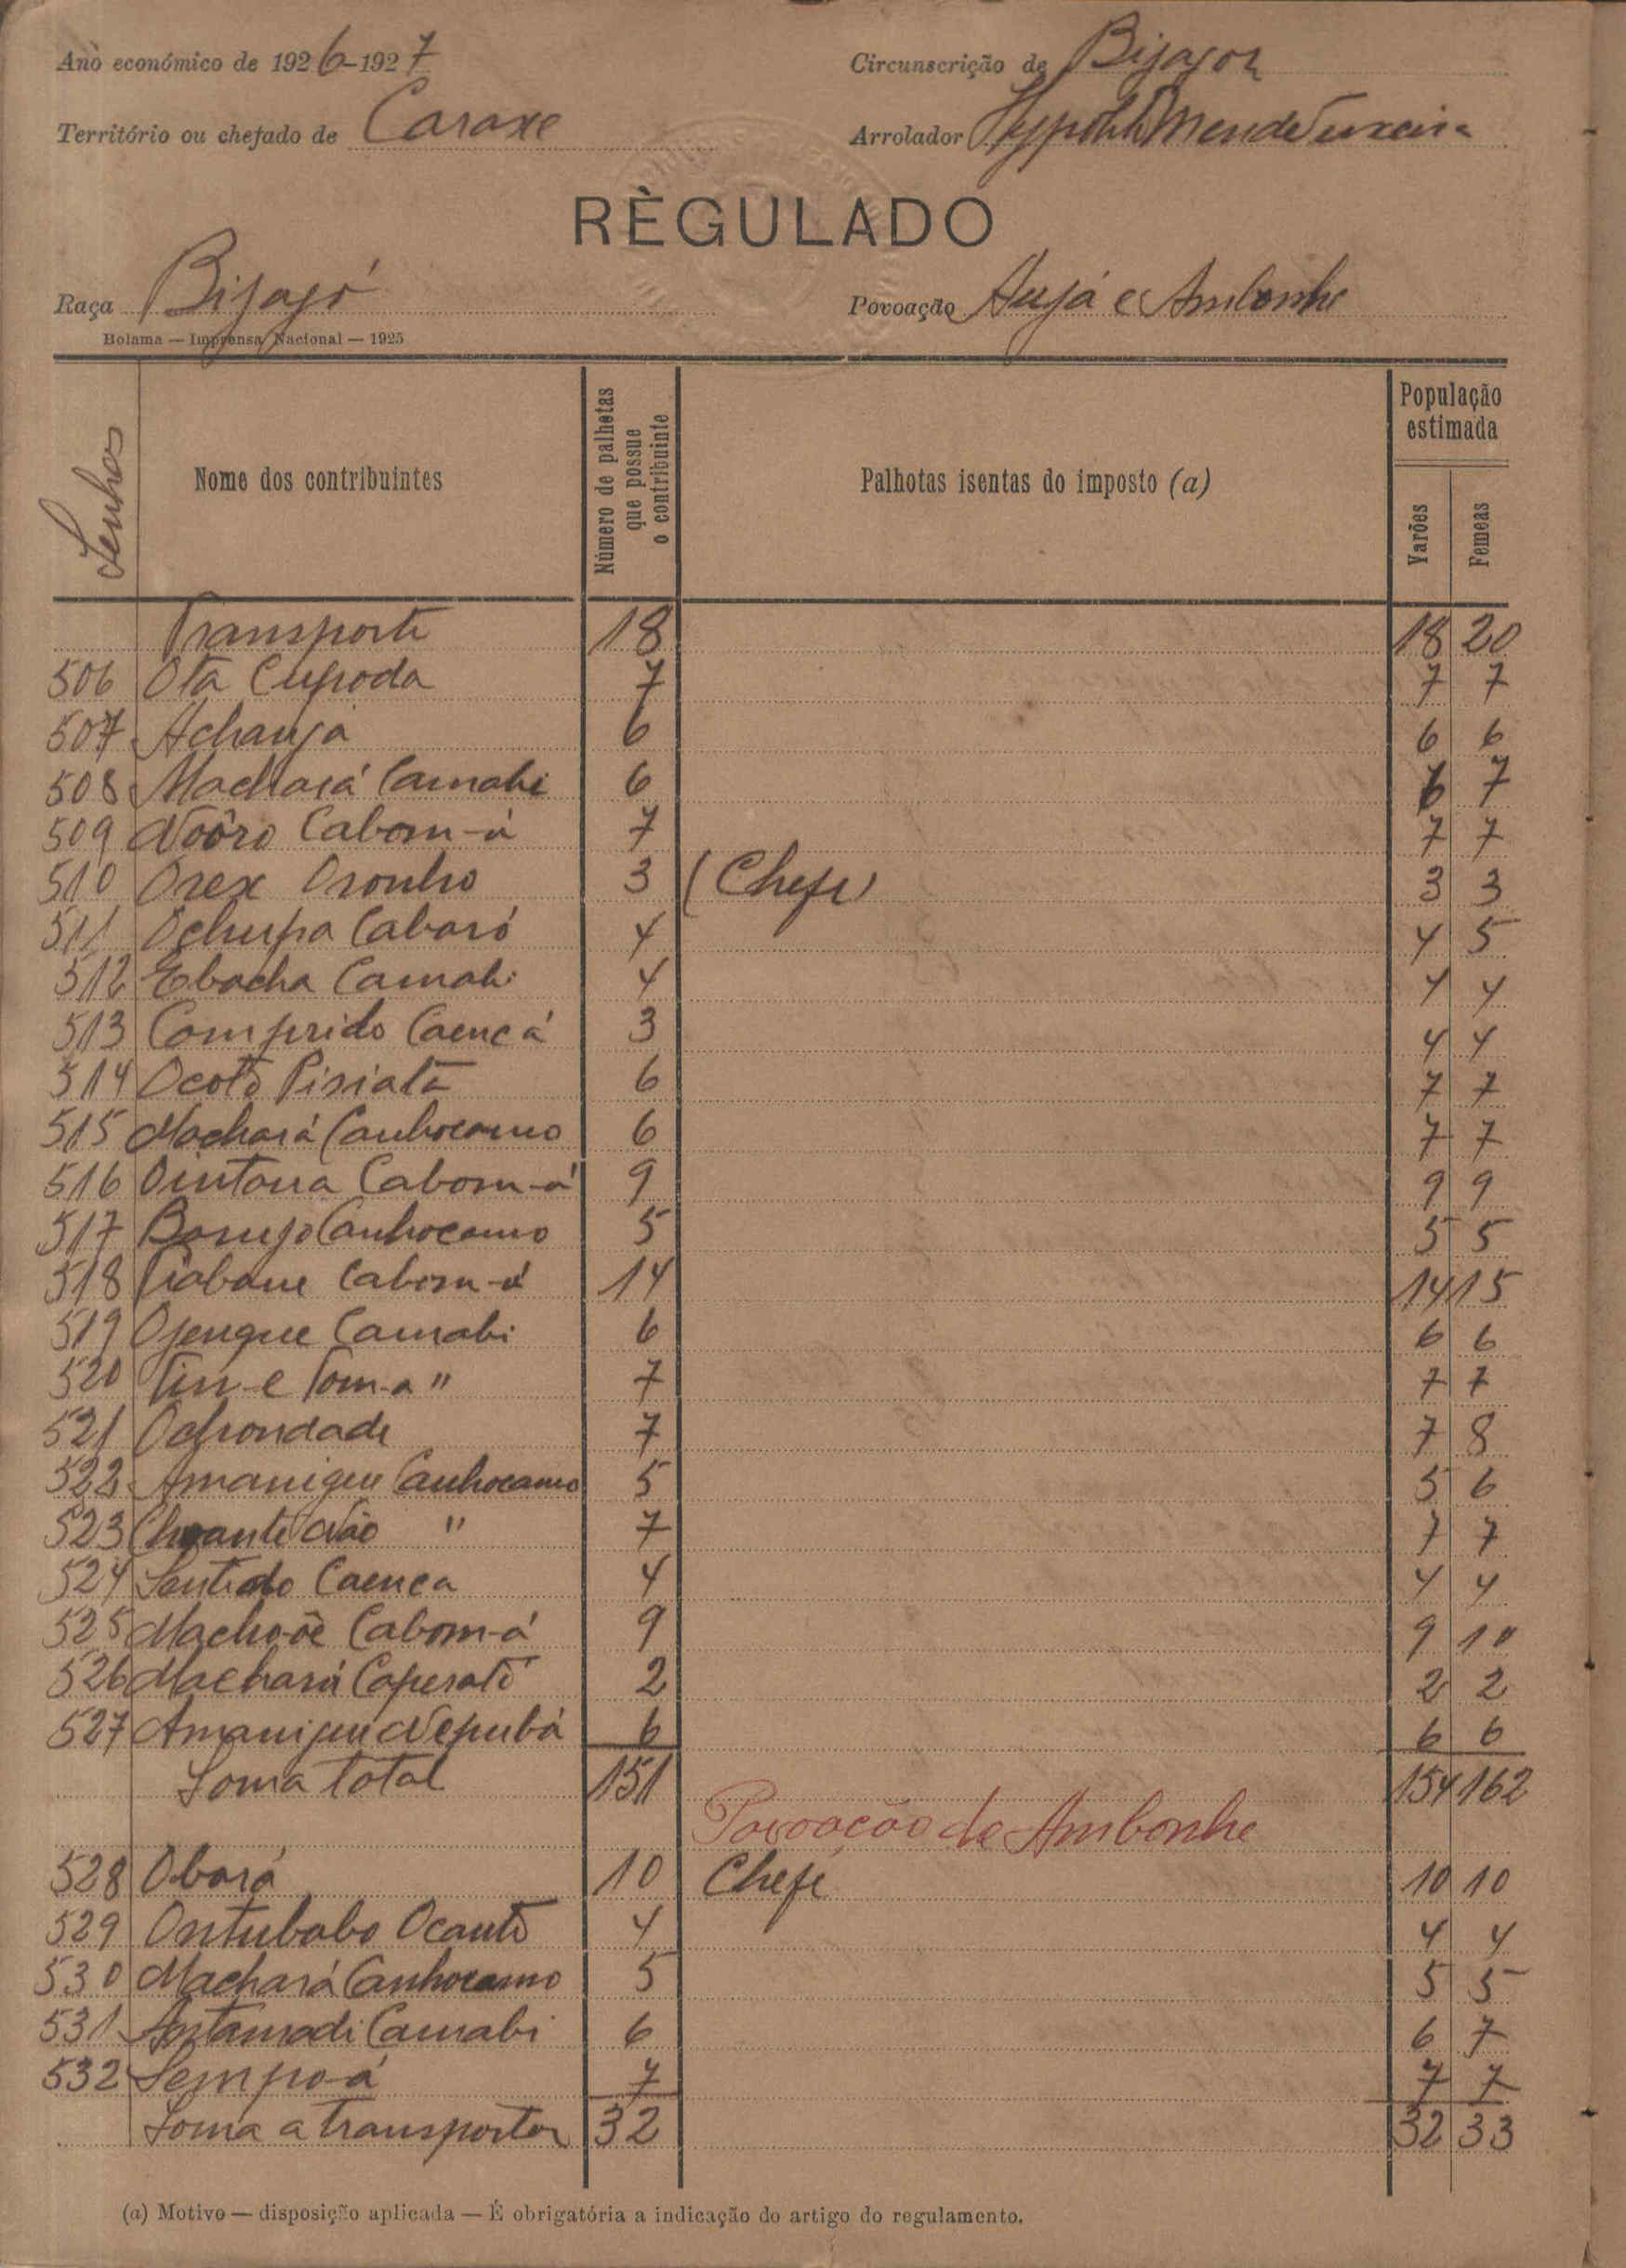 Anò económico de 1926-1927
Circunscrição de Bijagoz
Território ou chefado de Caraxe
Arrolador Mendes
RÈGULADO
Raça Bijagó
Povoação Aujá e Ambonhe
Bolama — Imprensa Nacional — 1925
Senhas
Nome dos contribuintes
Número de palhotas que possue o contribuinte
Palhotas isentas do imposto (a)
População estimada
Varões
Femeas
Transporte 18 18 20
506 Ota Cupoda 7 7 7
507 Achanja 6 6 6
508 Machará Camabi 6 6 7
509 Noôro Cabom-á 7 7 7
510 Orex Oronho 3 (Chefe) 3 3
511 Ochupa Cabaró 4 4 5
512 Ebocha Camabi 4 4 4
513 Comprido Caencá 3 4 4
514 Ocotó 6 7 7
515 Machará Canhocamo 6 7 7
516 Ointana Cabom-á 9 9 9
517 Canhocamo 5 5 5
518 Cabom-á 14 14 15
519 Ojengue Camabi 6 6 6
520 Tin-e Tom-a " 7 7 7
521 Ochondade 7 7 8
522 Amanigue Canhocamo 5 5 6
523 Não " 7 7 7
524 Sentido Caenca 4 4 4
525 Macho-ôe Cabom-á 9 9 10
526 Machará Caperató 2 2 2
527 Amanigue Nepubá 6 6 6
Soma total 151 154 162
Povoação de Ambonhe
528 Obará 10 Chefe 10 10
529 Ontubabo Ocantó 4 4 4
530 Machará Canhocamo 5 5 5
531 Antamadi Camabi 6 6 7
532 Sempo-á 7 7 7
Soma a transportar 32 32 33
(a) Motivo — disposição aplicada — É obrigatória a indicação do artigo do regulamento.